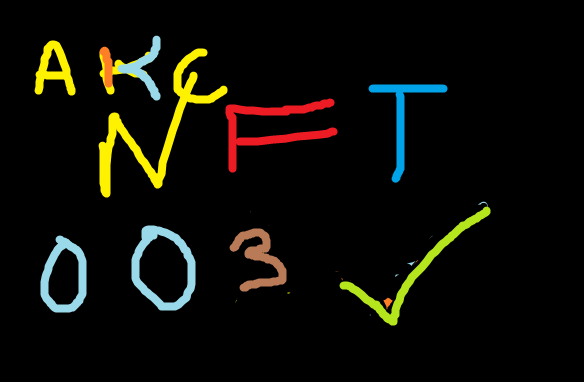 AKC
NFT
003